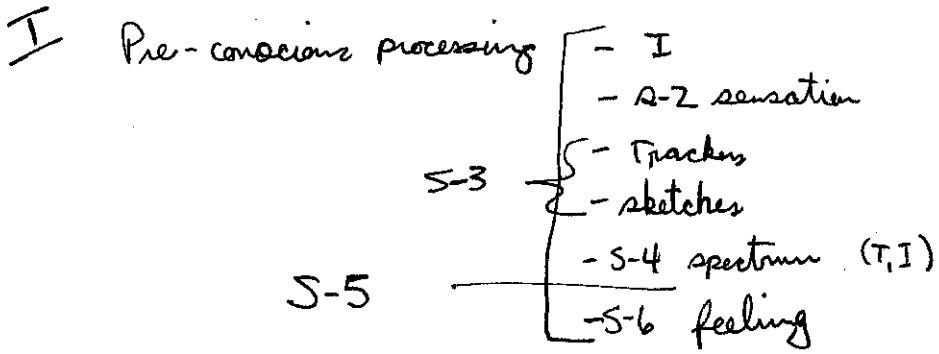 I Pre-conscious processing - I
- S-2 sensation
- Trackers
S-3
- sketches
- S-4 spectrum (T, I)
S-5
- S-6 feeling